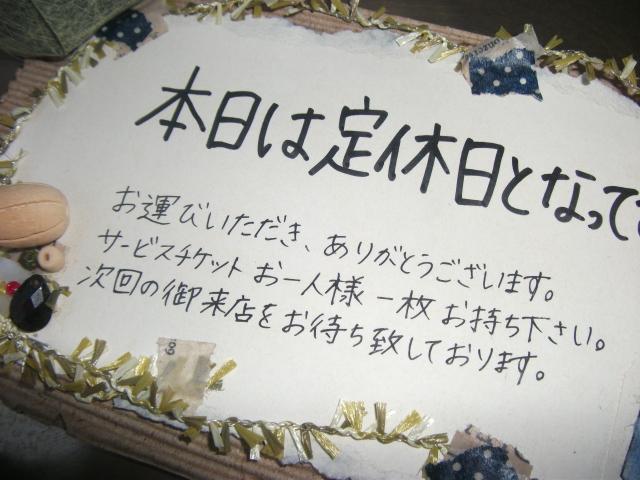 本日は定休日となって
お運びいただき、ありがとうございます。
サービスチケット お一人様 一枚 お持ち下さい。
次回の御来店をお待ち致しております。